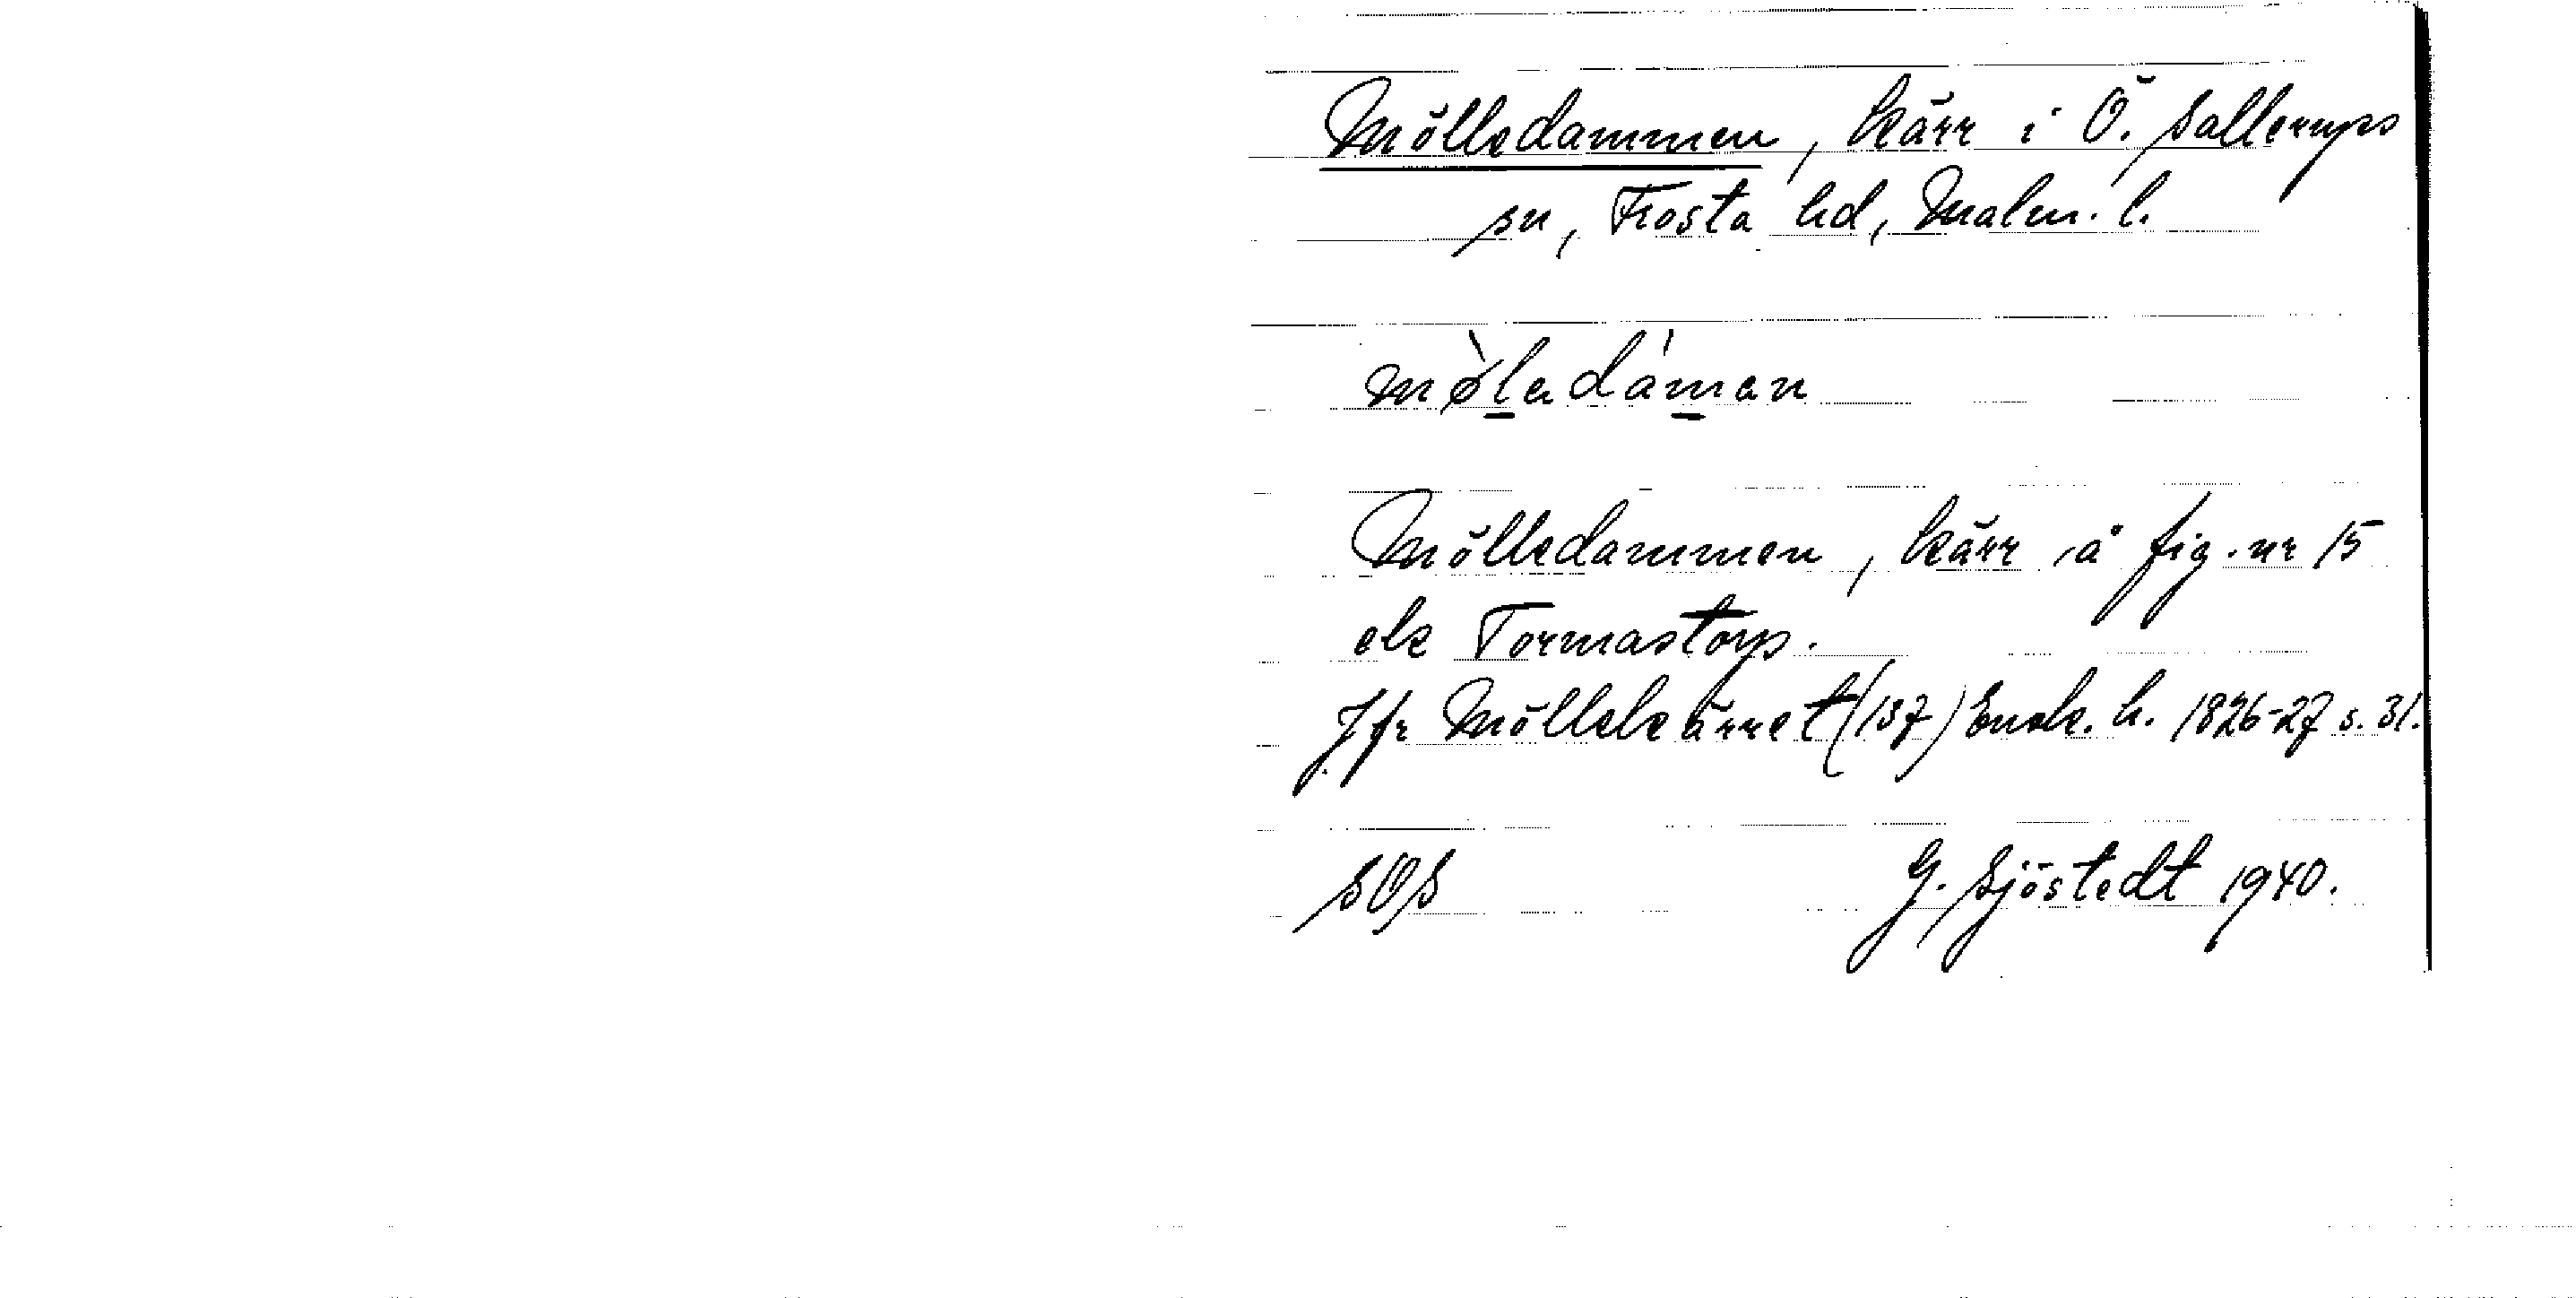 Mölledammen, kärr i Ö. Sallerups
sn, Frosta hd, Malm. l.
mø̀l̲adám̲an
Mölledammen, kärr å fig. nr 15
ek Tormastorp.
Jfr Möllekärret (137) Ensk. h. 1826-27 s. 31.
SOS G. Sjöstedt 1940.